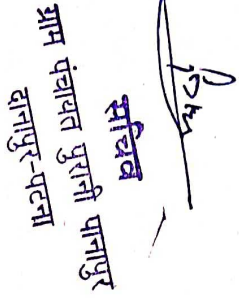 सचिव
ग्राम पंचायत पुरानी पानापुर
दानापुर-पटना